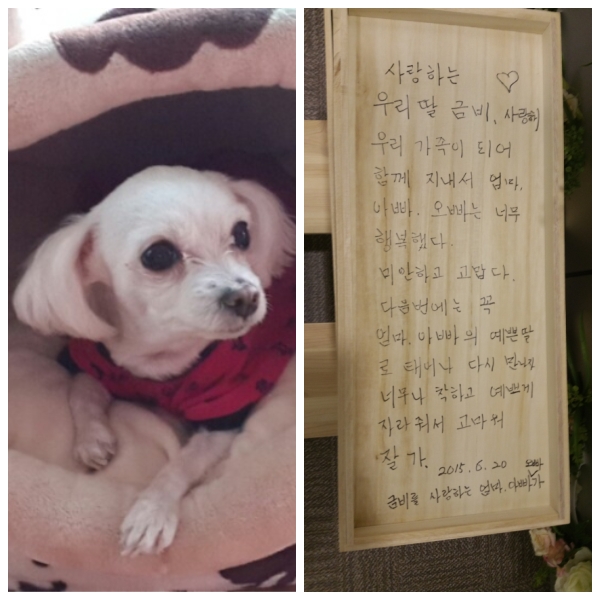 사랑하는 ♡
우리 딸 금비, 사랑해
우리 가족이 되어
함께 지내서 엄마,
아빠. 오빠는 너무
행복했다.
미안하고 고맙다.
다음번에는 꼭
엄마. 아빠의 예쁜딸
로 태어나 다시 만나자
너무나 착하고 예쁘게
자라줘서 고마워
잘 가.
2015. 6. 20 오빠
금비를 사랑하는 엄마. 아빠가